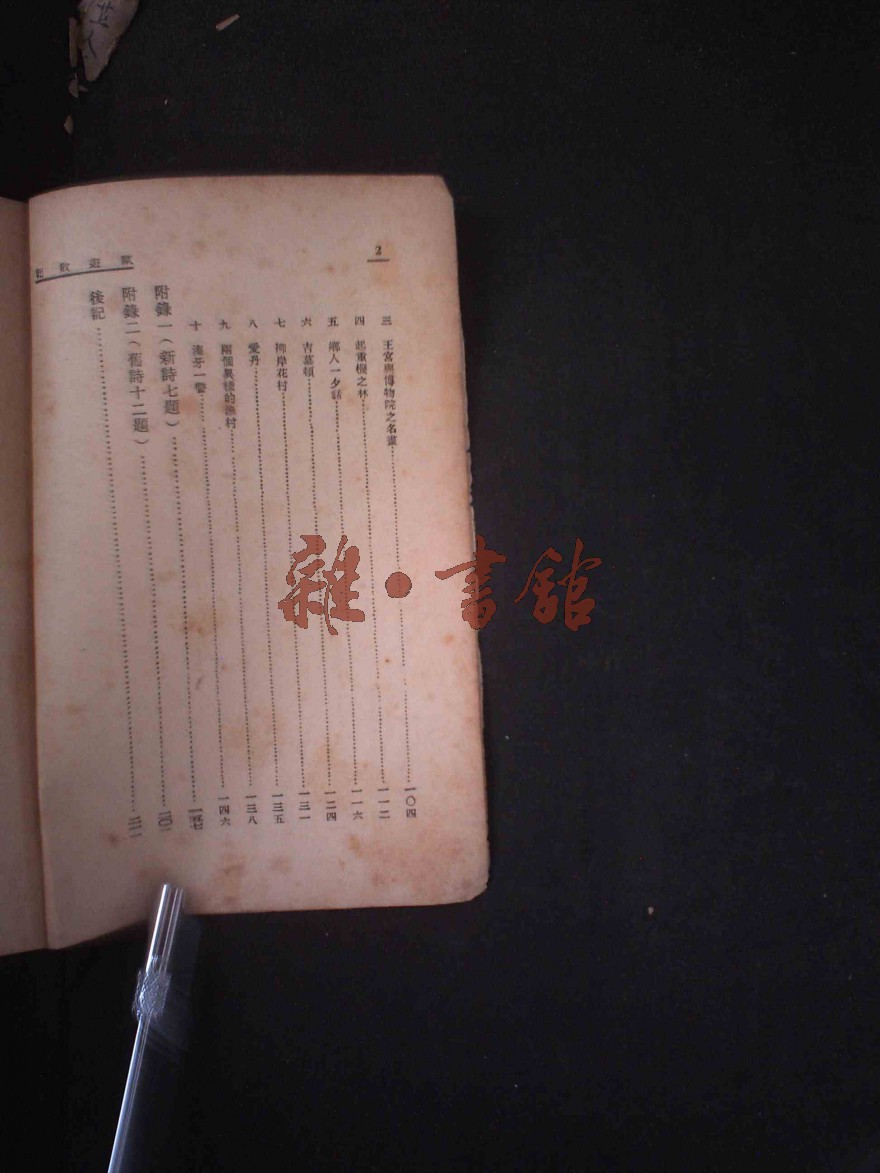 2
三 王宮與博物院之名畫 一〇四
四 起重機之林 一一二
五 鄉人一夕話 一一六
六 吉墓頓 一二四
七 柳岸花村 一三一
八 愛丹 一三五
九 兩個異樣的漁村 一三八
十 海牙一瞥 一四六
附錄一（新詩七題） 一五七
附錄二（舊詩十二題） 二〇一
後記 二一一
歐遊散
雜•書舘